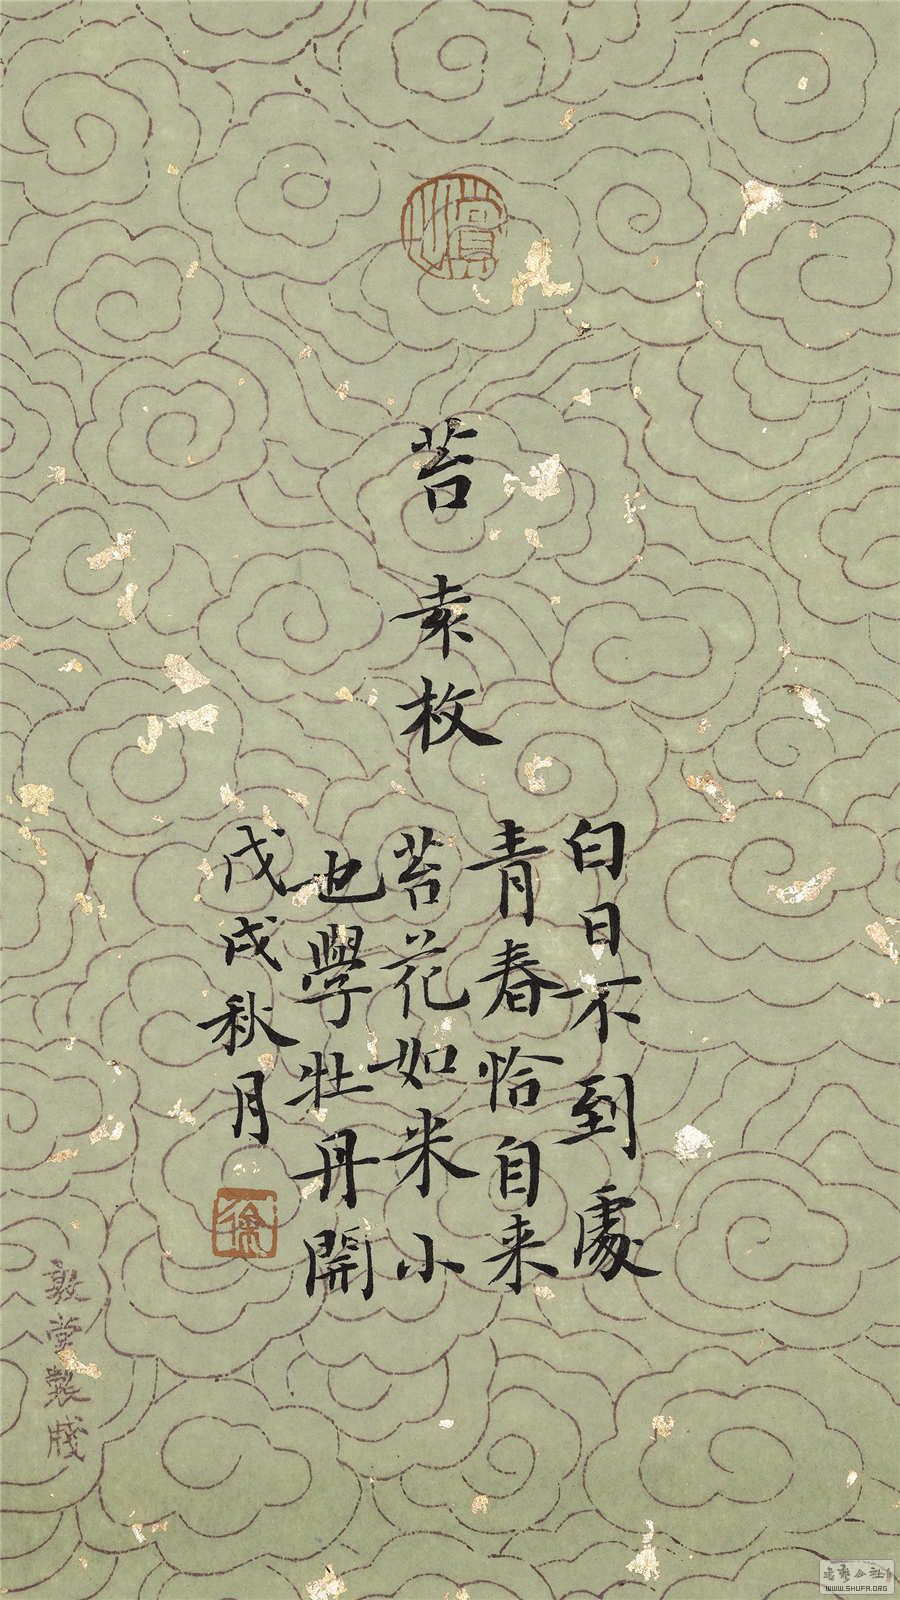 苔
袁枚
白日不到處
青春恰自来
苔花如米小
也學牡丹開
戊戌秋月
徐
敦堂製牋
书艺公社
WWW.SHUFA.ORG